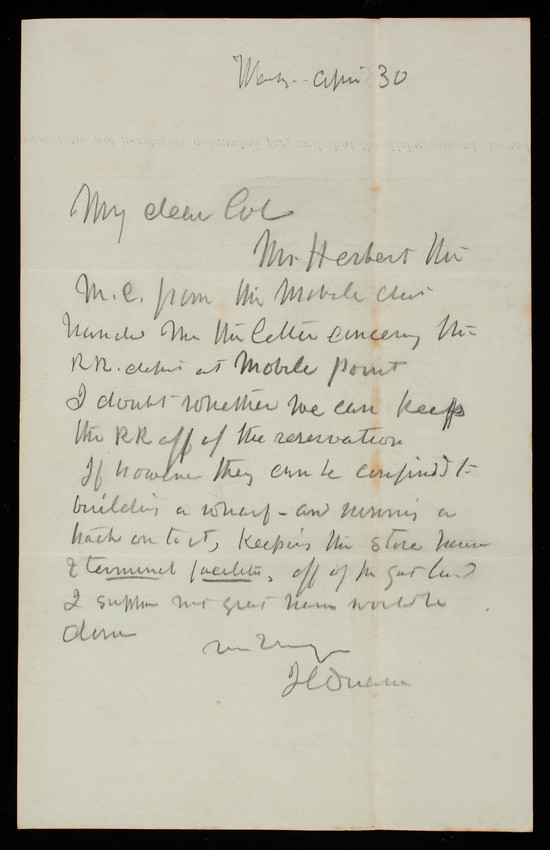 Monday - April 30
My dear Col
Mr. Herbert the
M.C. from the Mobile dist
hands me this letter concerning the
RR. at Mobile Point
I doubt whether we can keep
the RR off of the reservation
If however they can be confined to
building a wharf - and running a
track on to it, keeping the store house
& terminal facilities, off of the Govt land
I suppose no great harm would be
done
J C Duane